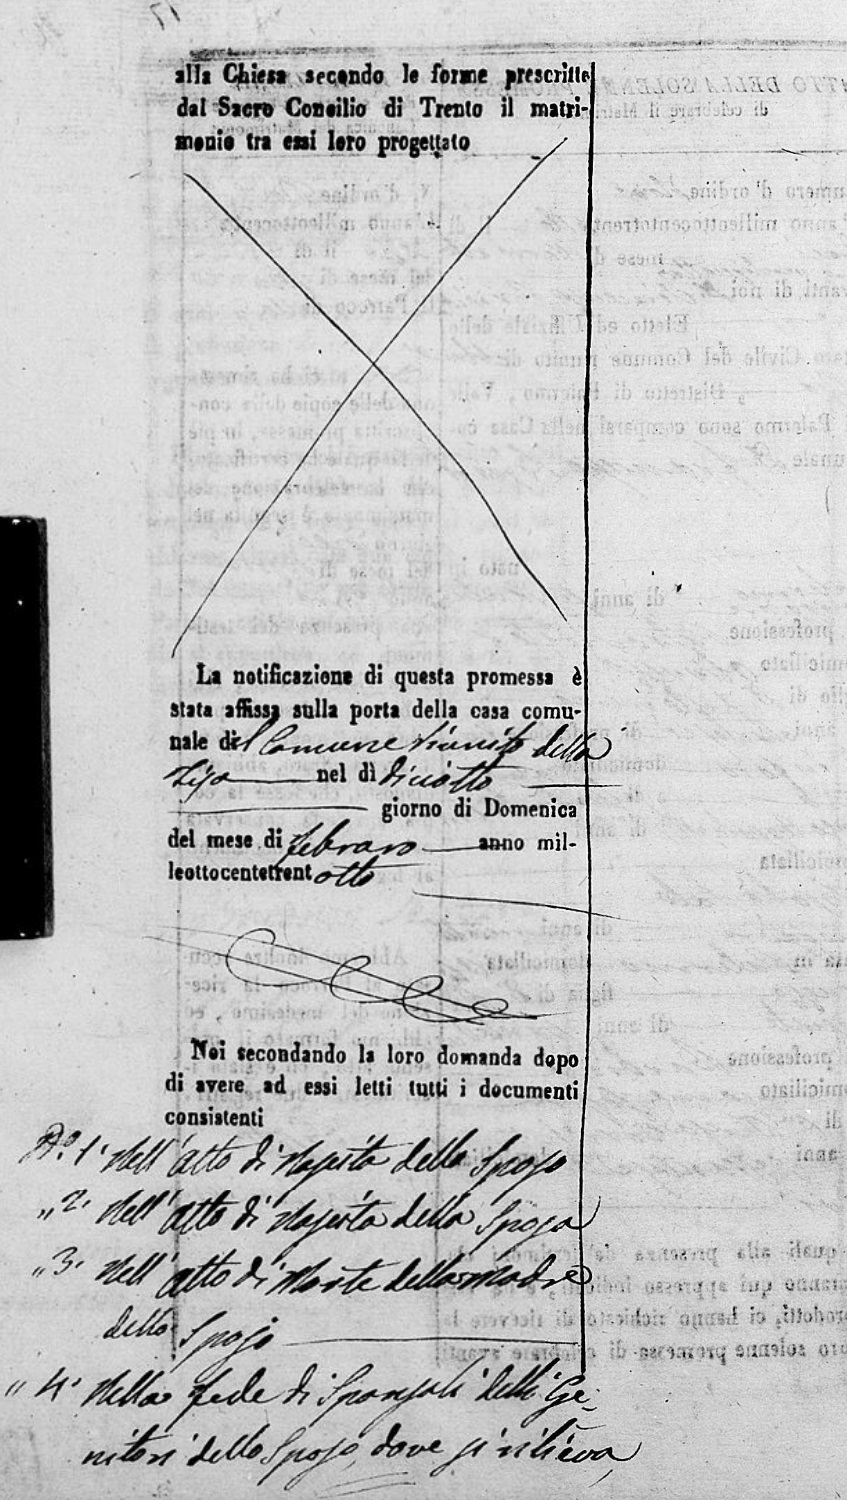 17
alla Chiesa secondo le forme prescritte
dal Sacro Concilio di Trento il matri-
monio tra essi loro progettato
La notificazione di questa promessa è
stata affissa sulla porta della casa comu-
nale del Comune riunito della
nel dì diciotto
giorno di Domenica
del mese di febraro anno mil-
leottocentotrent otto
Noi secondando la loro domanda dopo
di avere ad essi letti tutti i documenti
consistenti
N.° 1. Nell'atto di nascita dello Sposo
" 2. Nell'atto di nascita della Sposa
" 3. Nell'atto di Morte della Madre
dello Sposo
" 4. Nella fede di Sponsali delli Ge-
nitori dello Sposo, dove si rileva,